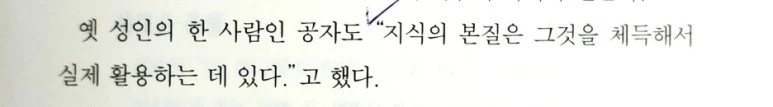 옛 성인의 한 사람인 공자도 “지식의 본질은 그것을 체득해서
실제 활용하는 데 있다.”고 했다.